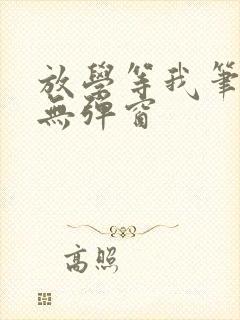 放學等我筆
無彈窗
高照